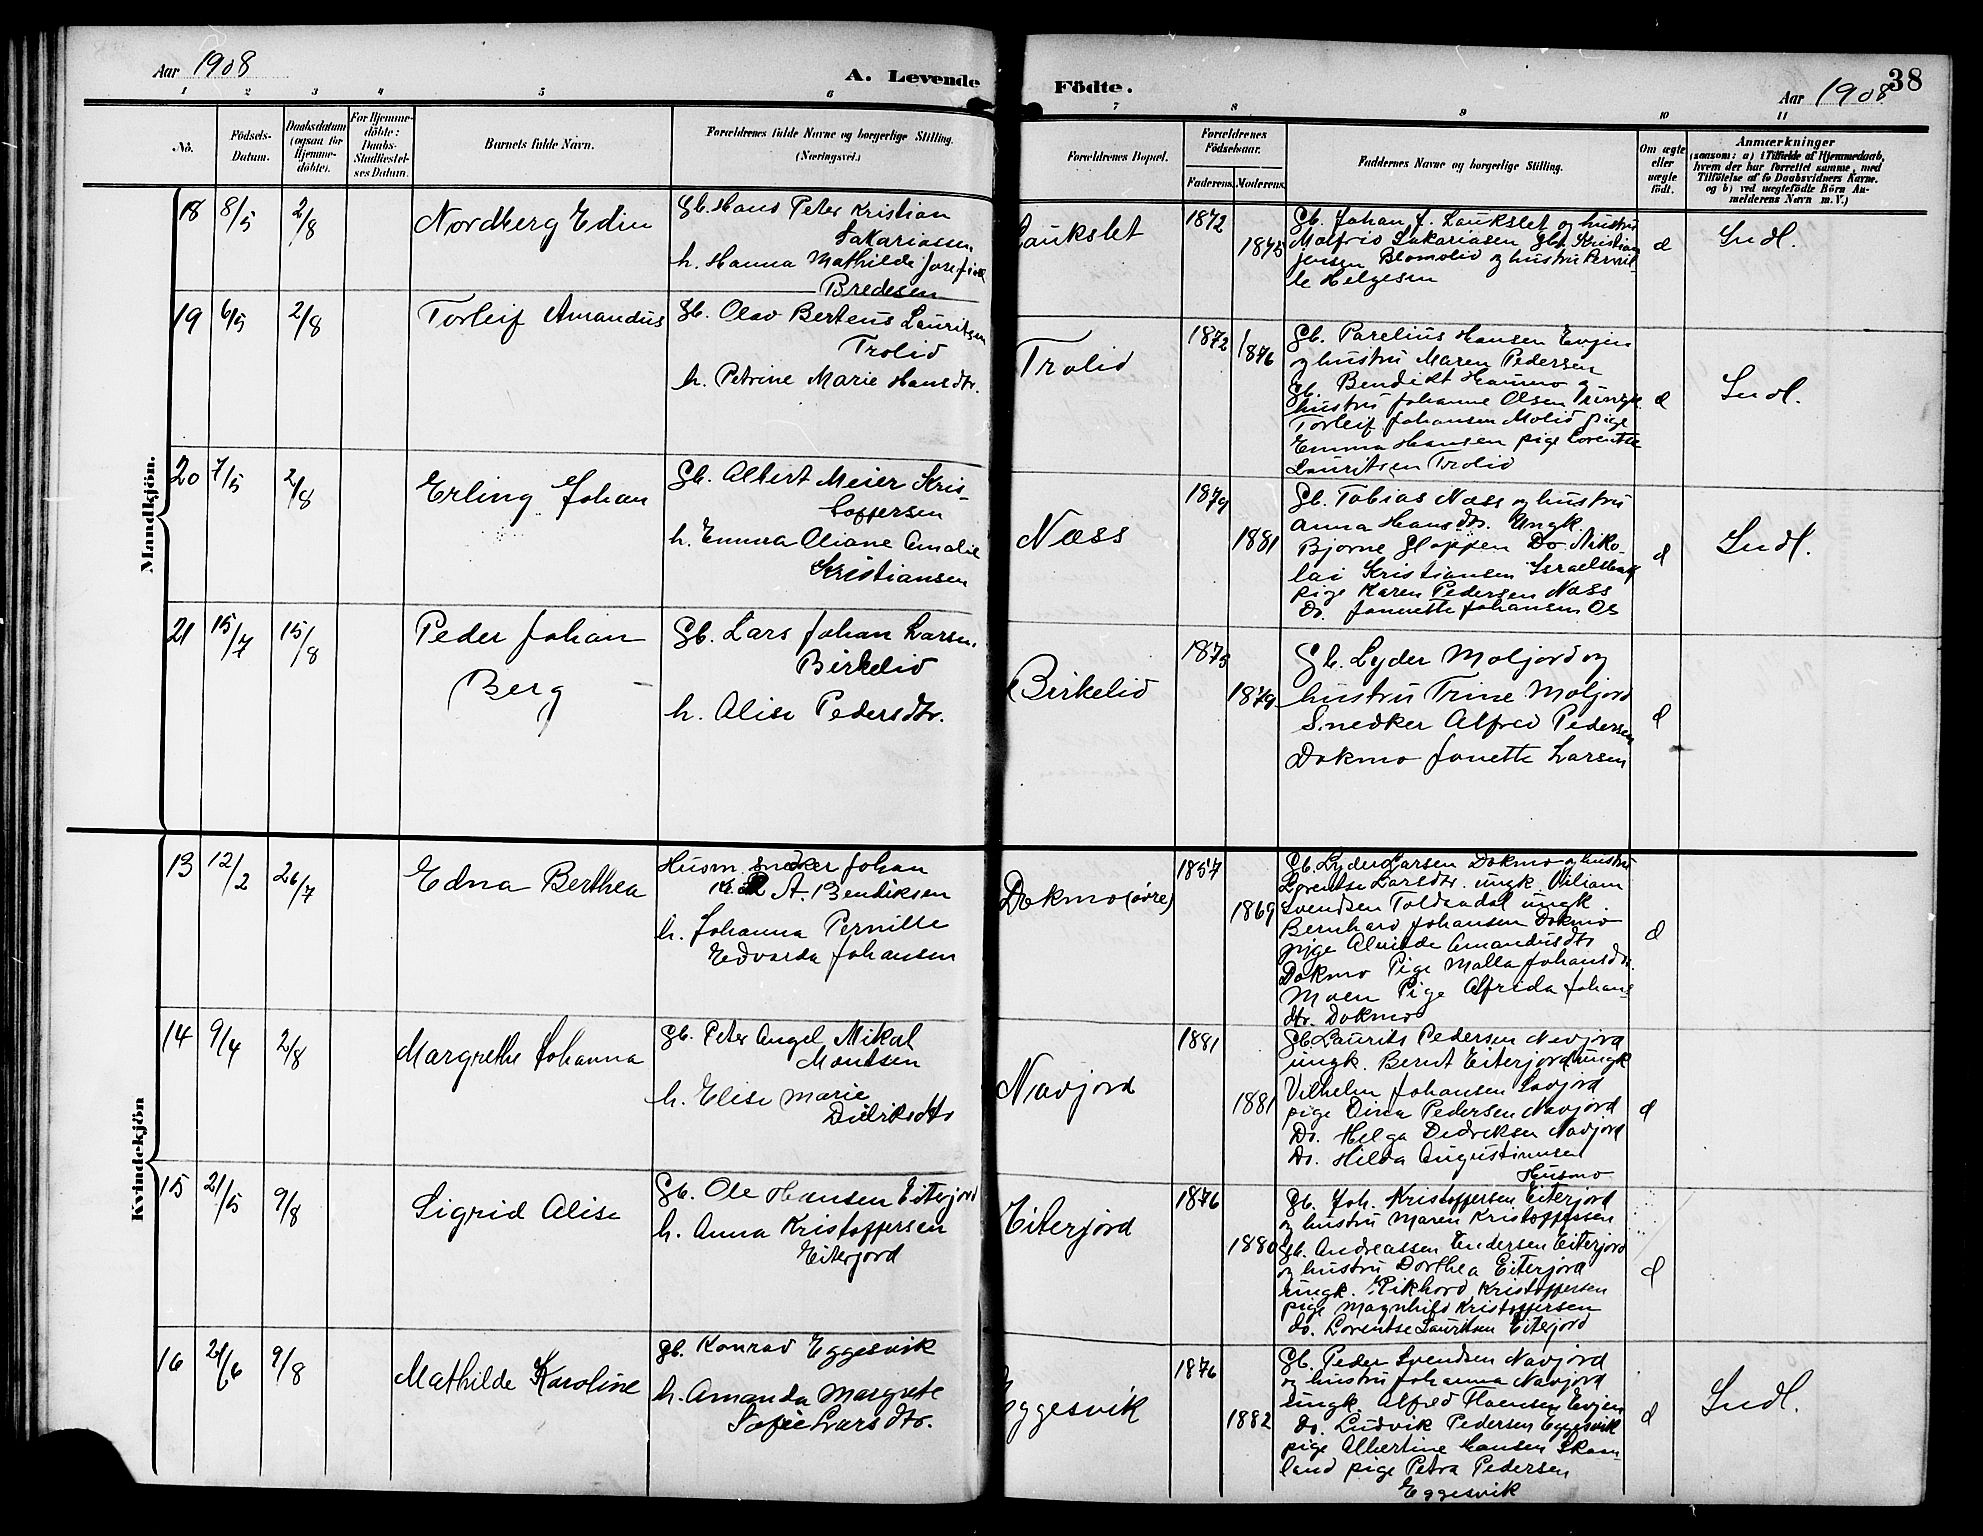 Aar 1908
A. Levende
Födte.
Aar 1908
38
1 2 3 4 5 6 7 8 9 10 11
No.
Födsels-
Datum.
Daabsdatum
(ogsaa for
Hjemme-
döbte).
For Hjemme-
döbte:
Daabs-
Stadfæstel-
ses Datum.
Barnets fulde Navn.
Forældrenes fulde Navne og borgerlige Stilling.
(Næringsvei.)
Forældrenes Bopæl.
Forældrenes
Födselsaar.
Faderens. Moderens.
Faddernes Navne og borgerlige Stilling.
Om ægte
eller
uægte
födt.
Anmærkninger
(saasom: a) i Tilfælde af Hjemmedaab,
hvem der har forrettet samme, med
Tilföielse af to Daabsvidners Navne.
og b) ved uægtefödte Börn An-
melderens Navn m. V.)
Mandkjön.
18 8/5 2/8
Nordberg Edin
Gb. Hans Peter Kristian
Sakariassen
h. Hanna Mathilde Josefine
Bredesen
Laukslet
1872
1875
Gb. Johan J. Laukslet og hustru
Malfrid Sakariasen Gb. Kristian
Jensen Blomolid og hustru Pernil-
le Helgesen
d
Indl.
19 6/5 2/8
Torleif Amandus
Gb. Olav Berteus Lauritsen
Trolid
h. Petrine Marie Hansdtr.
Trolid
1872
1876
Gb. Parelius Hansen Evjen
og hustru Maren Pedersen
Gb. Bendikt Hammo og
hustru Johanne Olsen Ungk.
Torleif Johansen Molid pige
Emma Hansen pige Lorentse
Lauritsen Trolid
d
Indl.
20 7/5 2/8
Erling Johan
Gb. Albert Meier Kris-
toffersen
h. Emma Oliane Amalie
Kristiansen
Næss
1879
1881
Gb. Tobias Næss og hustru
Anna Hansdtr. Ungk.
Bjarne Gloppen Do. Niko-
lai Kristiansen
pige Karen Pedersen Næss
Do. Jannette Johansen Os
d
Indl.
21 15/7 15/8
Peder Johan
Berg
Gb. Lars Johan Larsen
Birkelid
h. Alise Pedersdtr.
Birkelid
1875
1879
Gb. Lyder Moljord og
hustru Trine Moljord
Snedker Alfred Pedersen
Dokmo Janette Larsen
d
Kvindekjön
13 12/2 26/7
Edna Berthea
Husm. sneker Johan
A. Bendiksen
h. Johanna Pernille
Edvarda Johansen
Dokmo (övre)
1857
1869
Gb. Lyder Larsen Dokmo og hustru
Lorentse Larsdtr. ungk. Viliam
Svendsen Toldaadal ungk.
Bernhard Johansen Dokmo
pige Alvilde Amandusdtr
Dokmo Pige Malla Johansdtr.
Moen Pige Alfrida Johans-
dtr. Dokmo
d
14 9/4 2/8
Margrethe Johanna
Gb. Peter Angel Mikal
Montsen
h. Elise Marie
Didriksdtr
Navjord
1881
1881
Gb. Laurits Pedersen Navjord
ungk. Bernt Eiterjord ungk
Vilhelm Johansen Savjord
pige Dina Pedersen Navjord
Do. Helga Didriksen Navjord
Do. Hilda Augustinusen
Husmo
d
15 21/5 9/8
Sigrid Alise
Gb. Ole Hansen Eiterjord
h. Anna Kristoffersen
Eiterjord
Eiterjord
1876
1880
Gb. Joh. Kristoffersen Eiterjord
og hustru Maren Kristoffersen
Gb. Andreassen Endersen Eiterjord
og hustru Dorthea Eiterjord
ungk. Rikhord Kristoffersen
pige Magnhild Kristoffersen
do. Lorentse Lauritsen Eiterjord
d
16 21/6 9/8
Mathilde Karoline
Gb. Konrad Eggesvik
h. Amanda Margrete
Sofie Larsdtr.
Eggesvik
1876
1882
Gb. Peder Svendsen Navjord
og hustru Johanna Navjord
ungk. Alfred Hansen Evjen
Do. Ludvik Pedersen Eggesvik
pige Albertine Hansen Skam-
land pige Petra Pedersen
Eggesvik
d
Indl.